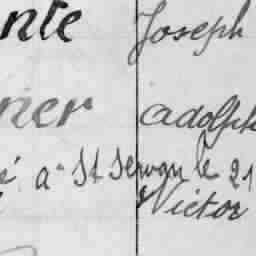 nte Joseph
ner adolph
é à St Servan le 21
Victor